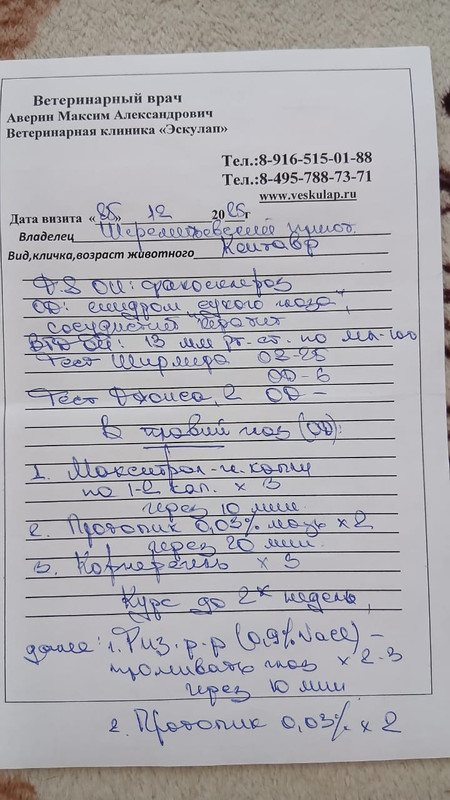 Ветеринарный врач
Аверин Максим Александрович
Ветеринарная клиника «Эскулап»
Тел.:8-916-515-01-88
Тел.:8-495-788-73-71
www.veskulap.ru
Дата визита «25» 12 2025г
Владелец Шереметьевский приют
Вид,кличка,возраст животного Кентавр
D.S OU: факосклероз
OD: синдром "сухого глаза",
сосудистый кератит
ВГД OU: 13 мм рт. ст. по
Тест Ширмера OS-25
OD-6
Тест Джонса 2 OD -
В правый глаз (OD):
1. Макситрол-гл. капли
по 1-2 кап. x 3
через 10 мин.
2. Протопик 0,03% мазь x 2
через 20 мин.
3. Корнерегель x 3
Курс до 2х недель,
далее: 1. Физ. р-р (0,9% NaCl) -
промывать глаз x 2-3
через 10 мин
2. Протопик 0,03% x 2